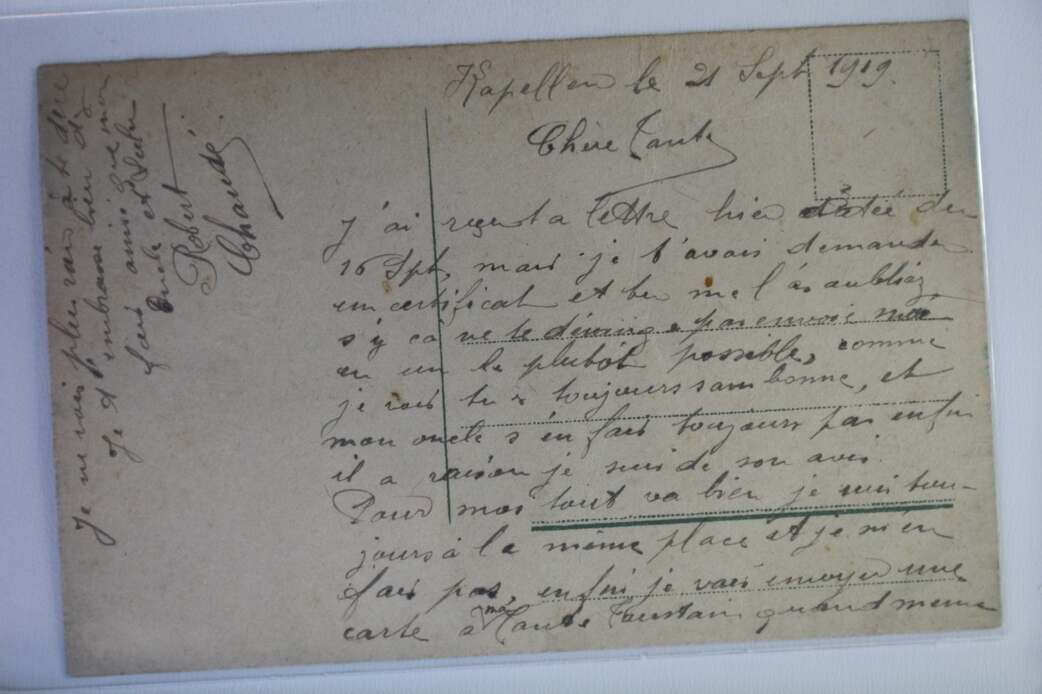 Kapellen le 21 Sept 1919.
Chère Tante
J'ai reçu ta lettre hier datée du
16 Spt, mais je t'avais demande
un certificat et tu me l'as oubliez
s'y ca ne te dérang pas envoie moi
en un le plutôt possible, comme
je vois tu toujours bonne, et
mon oncle s'en fais toujours pas enfin
il a raison je suis de son avis.
Pour moi tout va bien je suis tou-
jours à la même place et je m'en
fais pas, enfin je vais envoyer une
carte à ma Tante quand meme
Je ne vois plus rien à te dire
Je t embrasse bien
fort ainsi que mon
Oncle et
Robert